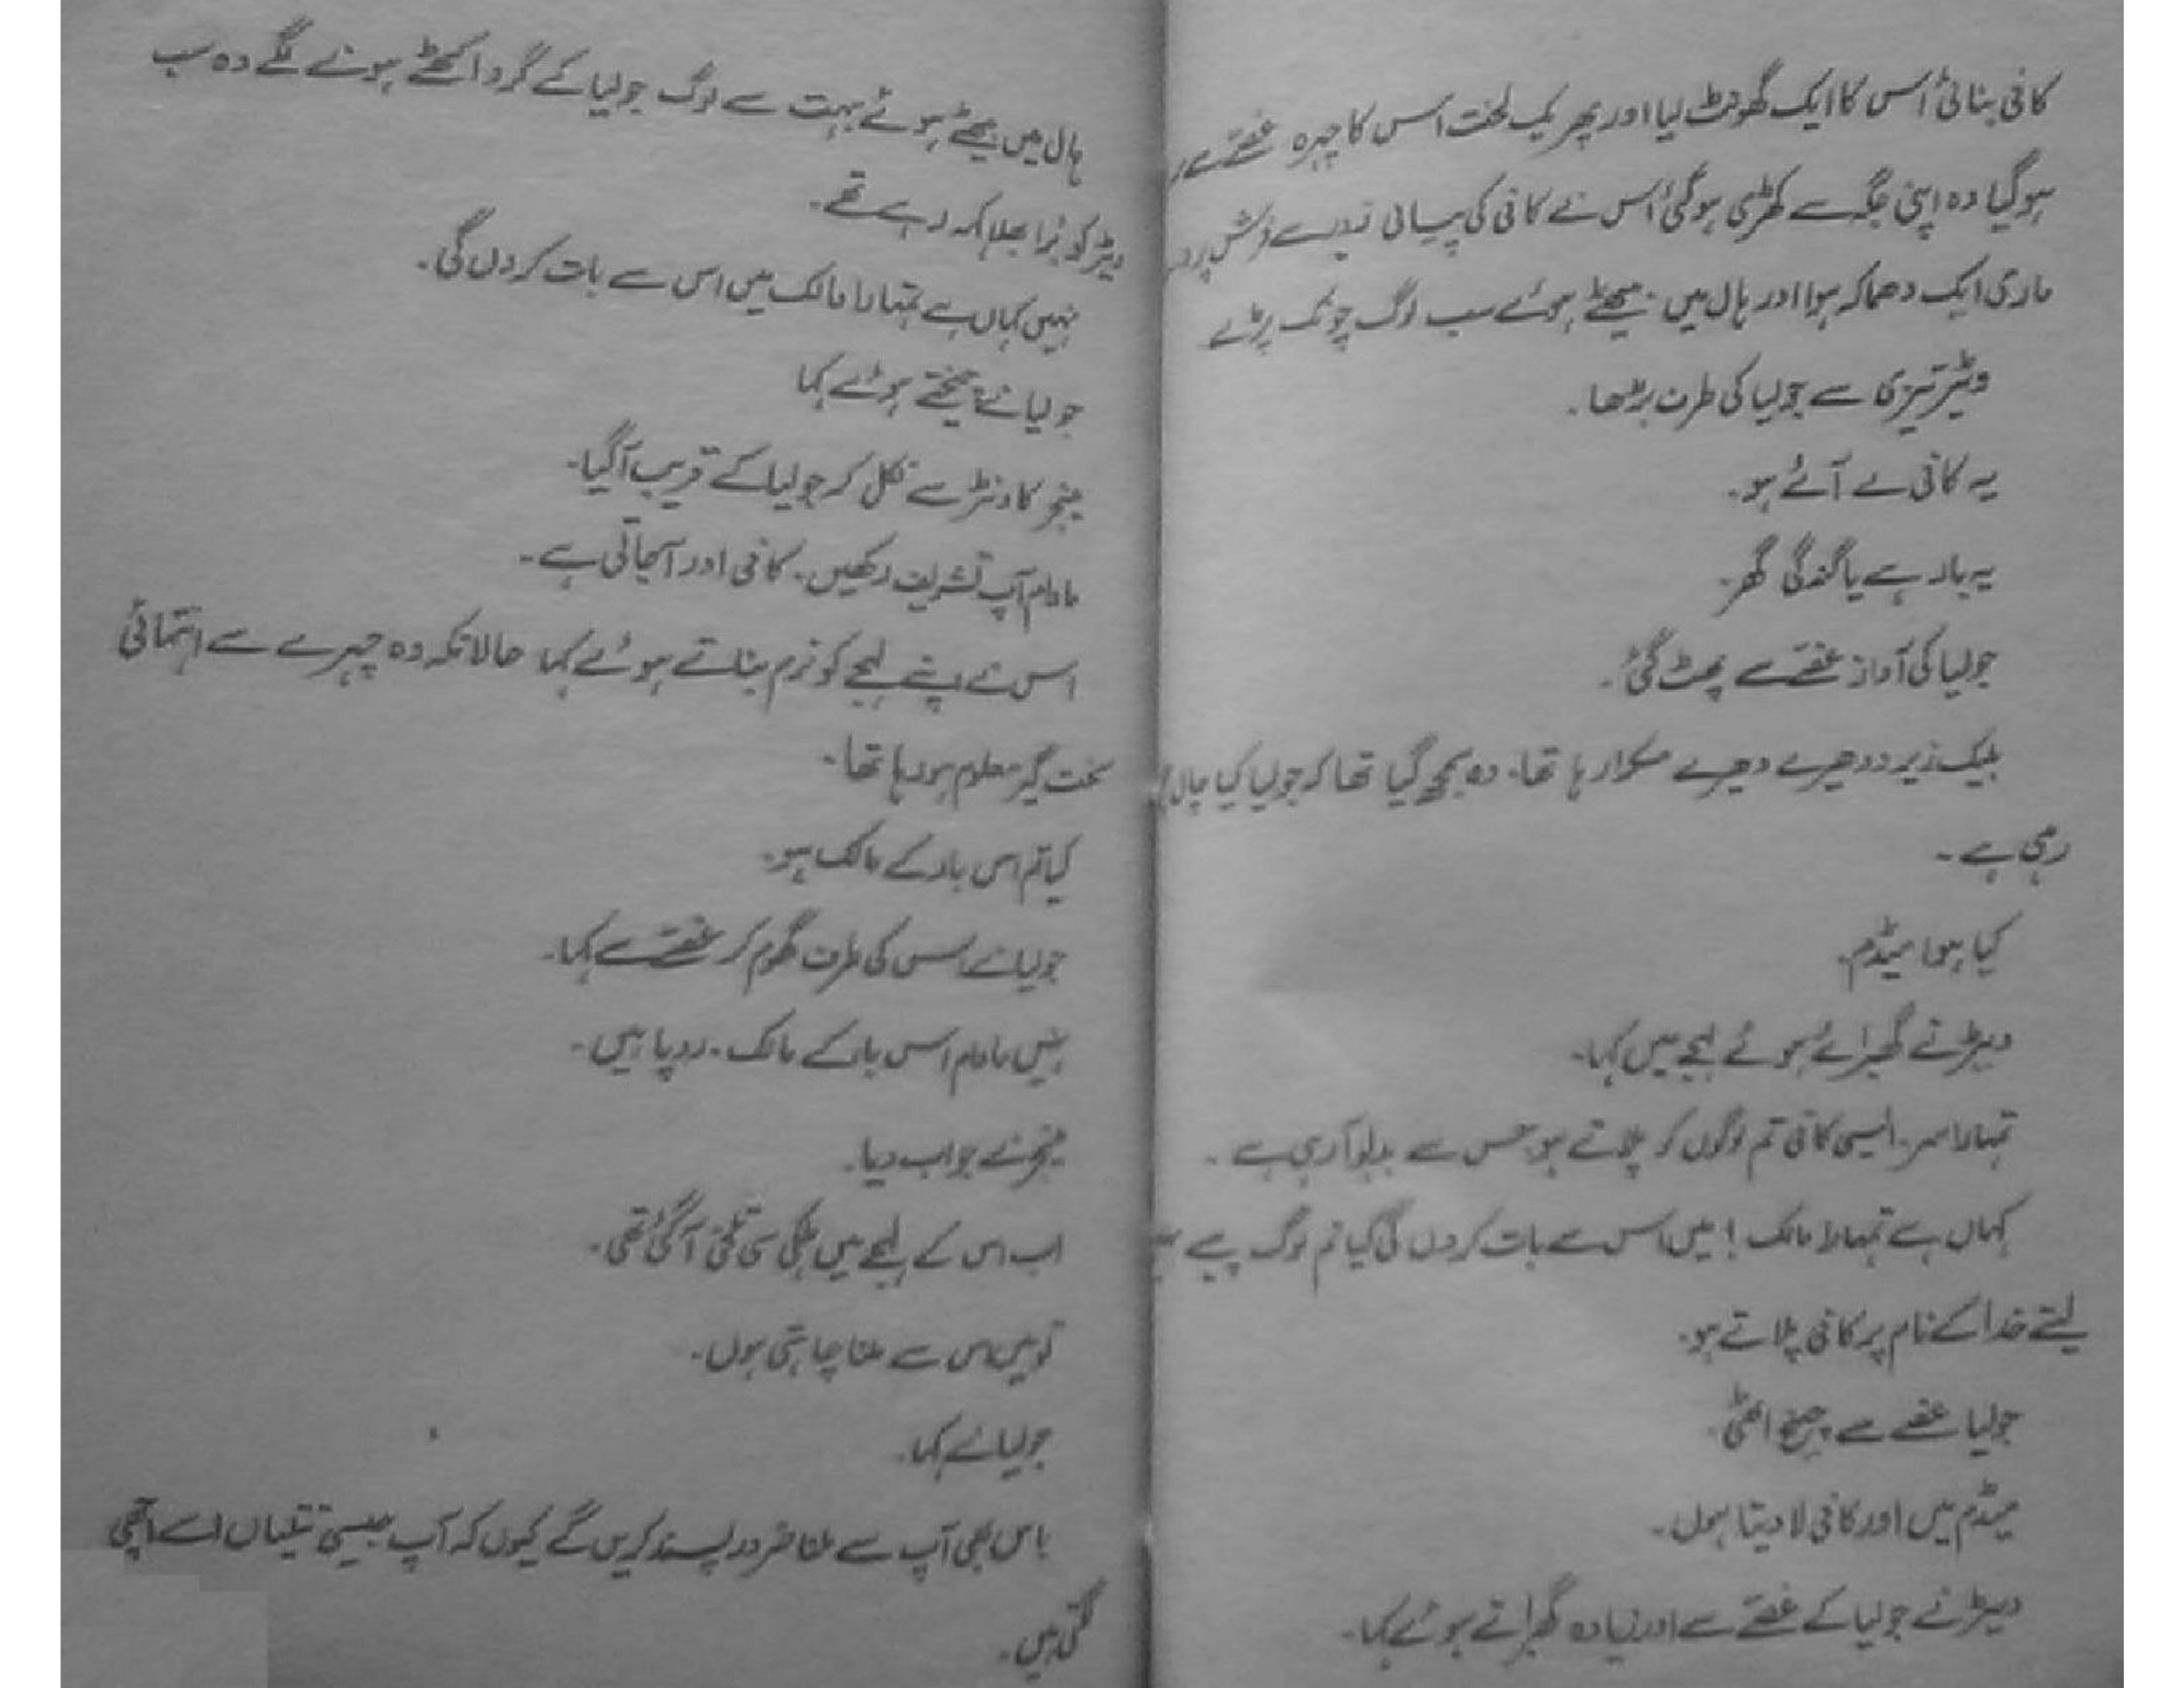 کافی بنائی اس کا ایک گھونٹ لیا اور پھر یک لخت اس کا چہرہ غصے سے
ہو گیا وہ اپنی جگہ سے کھڑی ہو گئی اس نے کافی کی پیالی زور سے فرش پر دے
ماری ایک دھماکہ ہوا اور ہال میں بیٹھے ہوئے سب لوگ چونک پڑے
ویٹر تیزی سے جولیا کی طرف بڑھا۔
یہ کافی لے آئے ہو۔
یہ بار ہے یا گندگی گھر۔
جولیا کی آواز غصے سے پھٹ گئی۔
بلیک زیرو دھیرے دھیرے مسکرا رہا تھا۔ وہ سمجھ گیا تھا کہ جولیا کیا چال
رہی ہے۔
کیا ہوا میڈم۔
ویٹر نے گھبرائے ہوئے لہجے میں کہا۔
تمہارا سر۔ ایسی کافی تم لوگوں کو پلاتے ہو جس سے بدبو آ رہی ہے۔
کہاں ہے تمہارا مالک! میں اس سے بات کروں گی کیا تم لوگ پیسے
لیتے خدا کے نام پر کافی پلاتے ہو۔
جولیا غصے سے چیخ اٹھی۔
میڈم میں اور کافی لا دیتا ہوں۔
ویٹر نے جولیا کے غصے سے اور زیادہ گھبراتے ہوئے کہا۔
ہال میں بیٹھے ہوئے بہت سے لوگ جولیا کے گرد اکٹھے ہونے لگے وہ سب
ویٹر کو برا بھلا کہہ رہے تھے۔
نہیں کہاں ہے تمہارا مالک میں اس سے بات کروں گی۔
جولیا نے چیختے ہوئے کہا
مینجر کاؤنٹر سے نکل کر جولیا کے قریب آ گیا۔
مادام آپ تشریف رکھیں۔ کافی اور آ جاتی ہے۔
اس نے اپنے لہجے کو نرم بناتے ہوئے کہا حالانکہ وہ چہرے سے انتہائی
سخت گیر معلوم ہو رہا تھا۔
کیا تم اس بار کے مالک ہو۔
جولیا نے اس کی طرف گھوم کر غصے سے کہا۔
نہیں مادام اس بار کے مالک۔ روپا ہیں۔
مینجر نے جواب دیا۔
اب اس کے لہجے میں ہلکی سی تلخی آ گئی تھی۔
تو میں اس سے ملنا چاہتی ہوں۔
جولیا نے کہا۔
باس بھی آپ سے ملنا ضرور پسند کریں گے کیوں کہ آپ جیسی تتلیاں اسے اچھی
لگتی ہیں۔